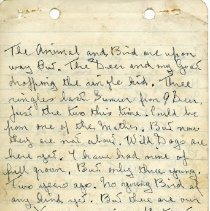 The Animal and Bird are upon
way But. The Deer and my Goat
dropping the single kid. Three
singles last Sumer from 9 Deer.
just the two this time. Could be
from one of the Mothers. But now
they are not about. Wild Dogs are
here yet. I have had none of
full grown. But only three young.
Two years ago. No young Bird of
any kind yet. But there are our